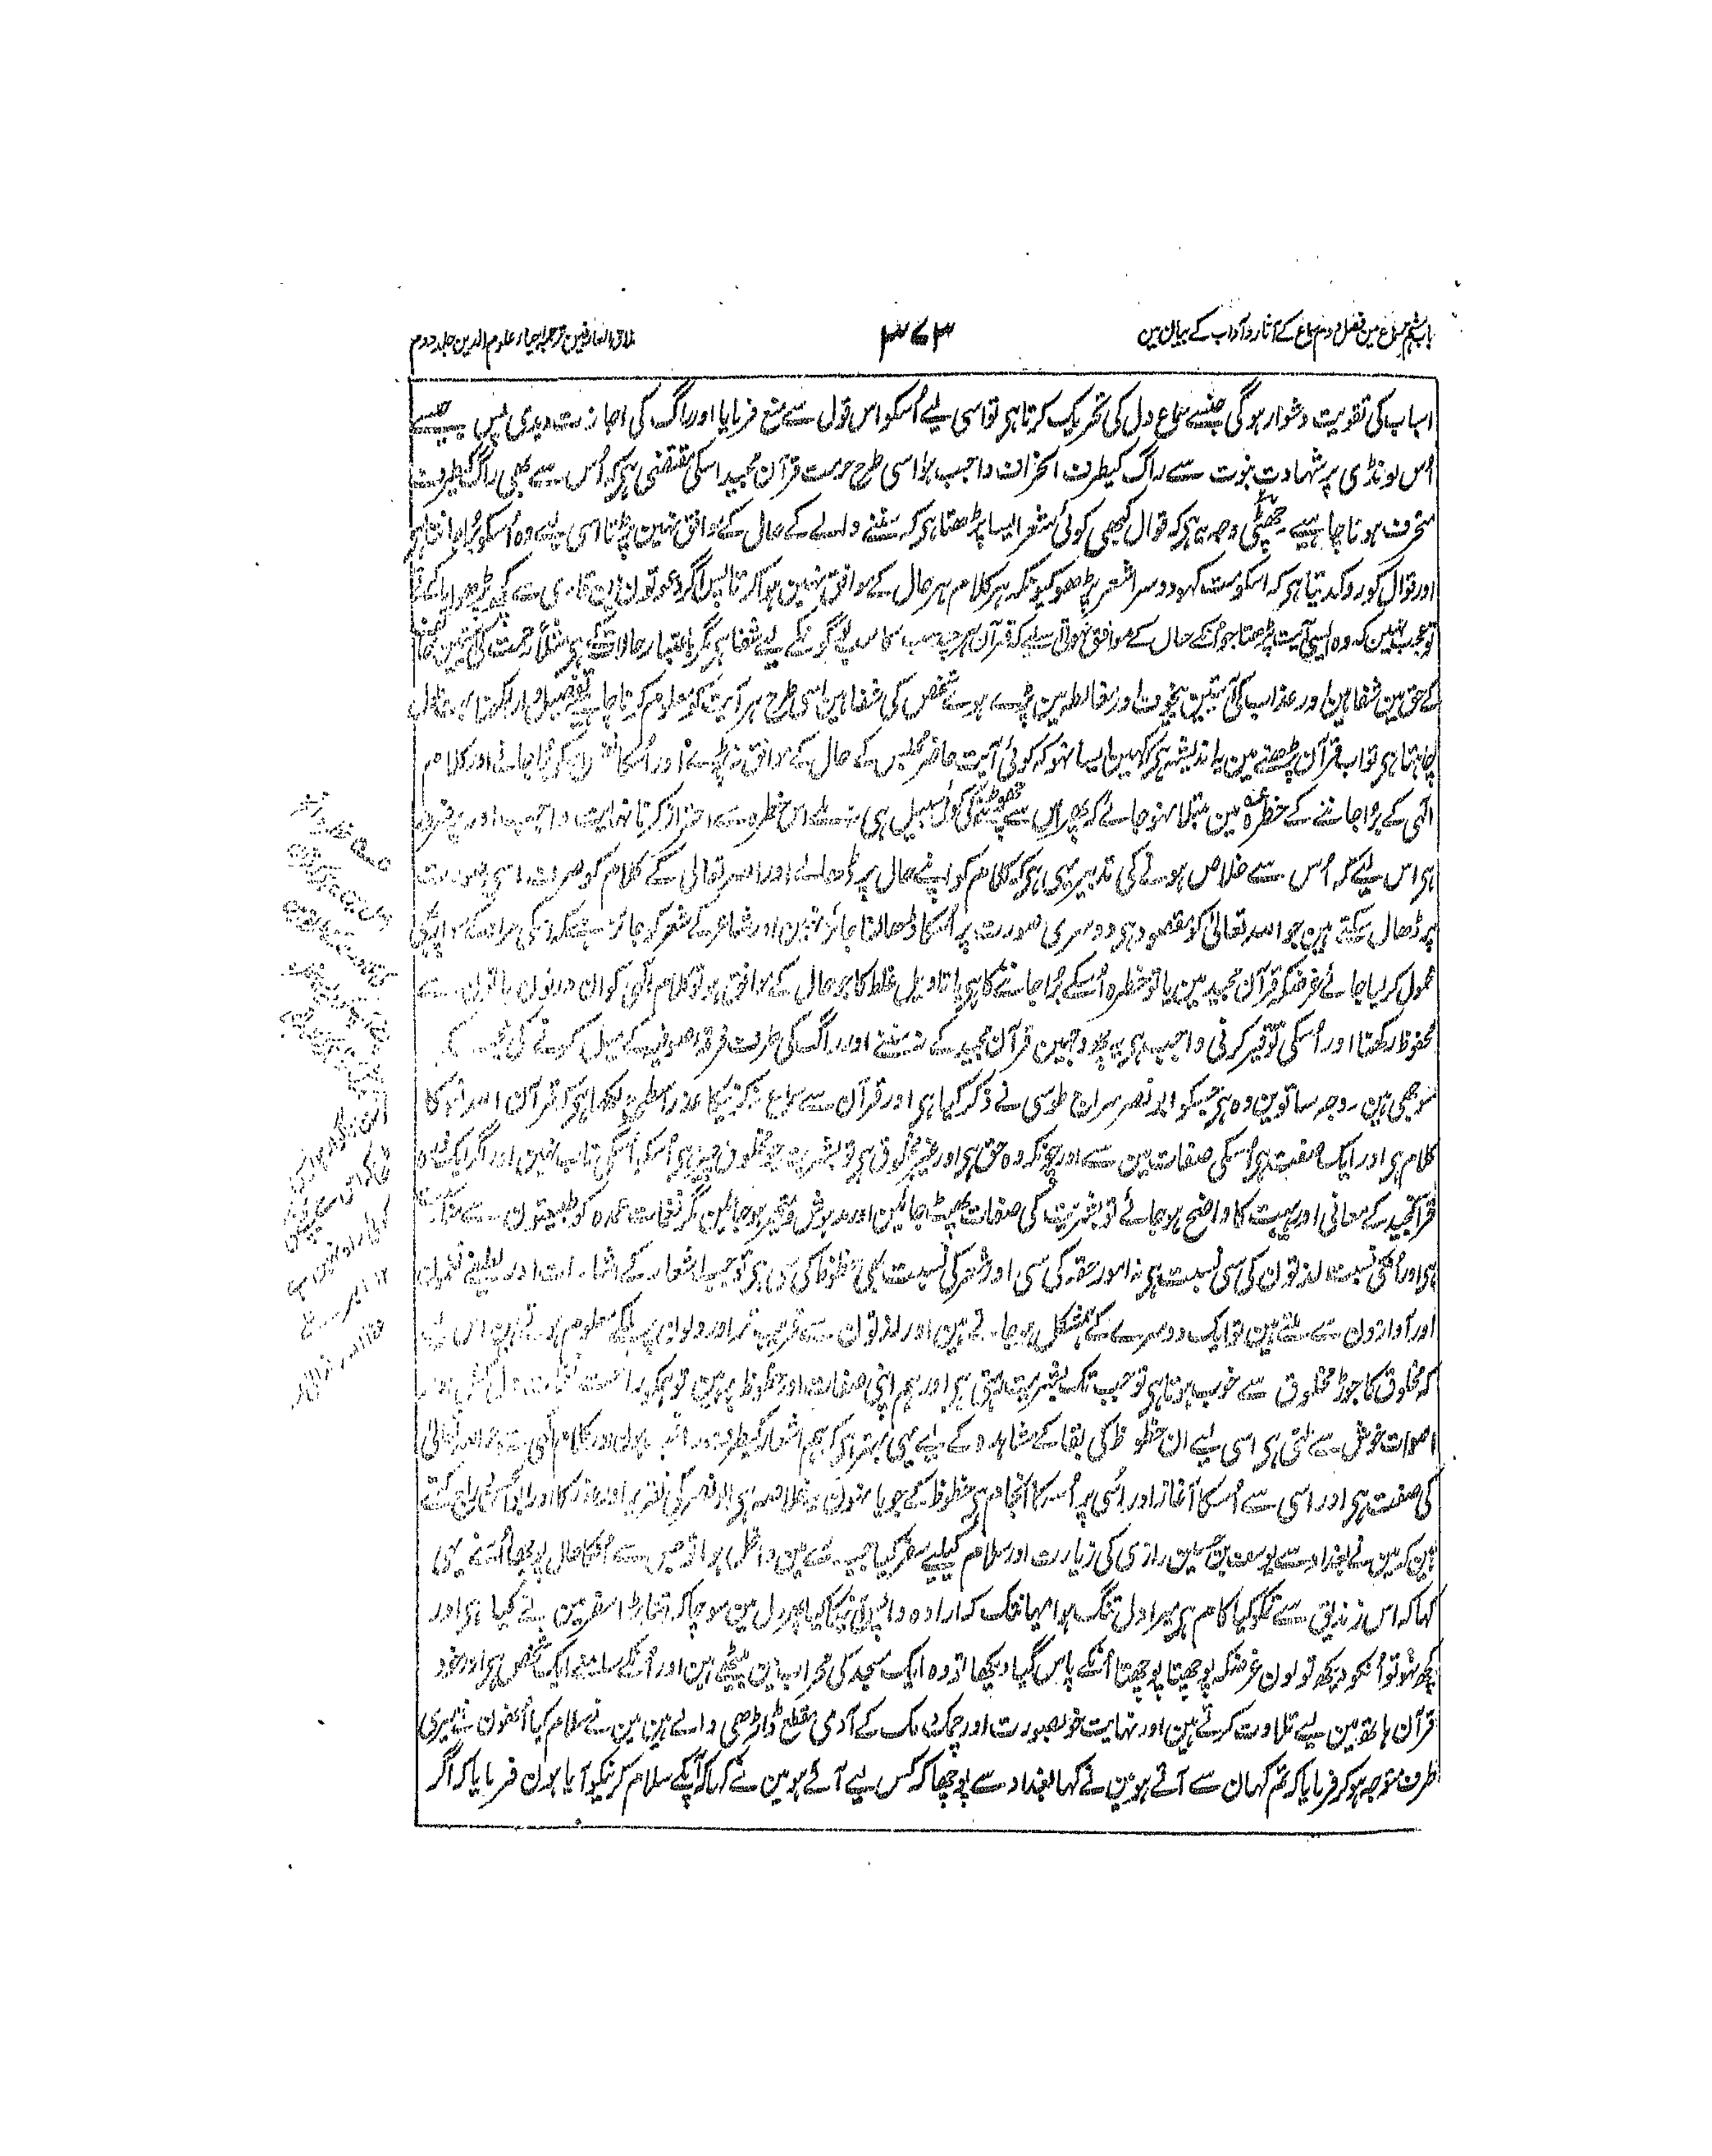 باب ہشتم سماع میں فصل دوم سماع کے آثار و آداب کے بیان مین
۳۶۳
مذاق العارفین ترجمہ احیاء علوم الدین جلد دوم
اسباب کی تقویت دشوار ہوگی جنسے سماع دل کی تحریک کرتا ہی تو اسی لیے اُسکو اس قول سے منع فرمایا اور راگ کی اجازت دیدی پس جیسے
اُس لونڈی پر شہادت نبوت سے راگ کیطرف انحراف واجب ہوا اسی طرح حرمت قرآن مجید اسکی مقتضی ہی کہ اُس سے بھی راگ کیطرف
منحرف ہونا چاہیے۔ چھٹی وجہ یہ ہی کہ قوال کبھی کوئی شعر ایسا پڑھتا ہی کہ سننے والے کے حال کے موافق نہین پڑتا اسی لیے وہ اُسکو بُرا جانتا ہی
اور قوال کو روکدیتا ہی کہ اسکو مت کہو دوسرا شعر پڑھو کیونکہ ہر کلام ہر حال کے موافق نہین ہوا کرتا پس اگر دعوتون مین قاری سے کچھ پڑھوایا کرتے
تو عجب نہین کہ وہ ایسی آیت پڑھتا جو اُنکے حال کے موافق نہوتی اسلیے کہ قرآن ہر چند سب کا سب لوگون کے لیے شفا ہی مگر باعتبار حالات کے ہی مثلاً رحمت کی آیتین
کے حق مین شفا ہین اور عذاب کی آیتین بیخوف اور مغالطہ مین پڑے ہوئے شخص کی شفا ہین اسی طرح ہر آیت کو معلوم کرنا چاہیے
چاہتا ہی تو اب قرآن پڑھنے مین یہ اندیشہ ہی کہ کہین ایسا نہو کہ کوئی آیت حاضر مجلس کے حال کے موافق نہ پڑے اور اُسکا نفس اُسکو بُرا جانے اور کلام
الٰہی کے بُرا جاننے کے خطرہ مین مبتلا ہو جائے کہ پھر اس سے چھوٹنے کی کوئی سبیل ہی نہ ملے اس خطرہ سے احتراز کرنا نہایت واجب اور
ہی اس لیے کہ اُس سے خلاص ہونے کی تدبیر یہی ہی کہ کلام کو اپنے حال پر ڈھالے اور اللہ تعالیٰ کے کلام کو صرف اسی صورت
پر ڈھال سکتے ہین جو اللہ تعالیٰ کو مقصود ہی دوسری صورت پر اُسکا ڈھالنا جائز نہین اور شاعر کے شعر کو جائز ہے کہ اُسکی مراد کے سوا پر بھی
محمول کر لیا جائے غرضکہ قرآن مجید مین یا تو خطرہ اُسکے بُرا جاننے کا ہی یا تاویل غلط کا جو حال کے موافق ہو تو کلام الٰہی کو ان دونون باتون سے
محفوظ رکھنا اور اُسکی توقیر کرنی واجب ہی یہ چھ وجہین قرآن مجید کے نہ سننے اور راگ کی طرف فرقہ صوفیہ کے میل کرنے کی مجھے
سوجھی ہین۔ وجہ ساتوین وہ ہی جسکو ابو نصر سراج طوسی نے ذکر کیا ہی اور قرآن سے سماع نہ کرنیکا عذر اسطرح لکھا ہی کہ قرآن اللہ تعالیٰ کا
کلام ہی اور ایک صفت ہی اُسکی صفات مین سے اور چونکہ وہ حق ہی اور غیر مخلوق ہی تو بشریت جو مخلوق چیز ہی اُسکو اُسکی تاب نہین اور اگر ایک ذرہ
قرآن مجید کے معانی اور ہیبت کا واضح ہو جائے تو بشریت کی صفات پھٹ جائین اور مدہوش و متحیر ہو جائین مگر نغمات عمدہ کو طبیعتون سے مناسبت
ہی اور اُنکی نسبت لذتون کی سی نسبت ہی نہ امور حقہ کی سی اور شعر کی نسبت بھی حظوظ کی سی ہی تو جب اشعار کے اشارات اور لطیفے نغمون
اور آوازون سے ملتے ہین تو ایک دوسرے کے ہمشکل ہو جاتے ہین اور لذتون سے قریب تر اور دلون پر ہلکے معلوم ہوتے ہین اس لیے
کہ مخلوق کا جوڑ مخلوق سے خوب ہوتا ہی تو جب تک بشریت رہتی ہی اور ہم اپنی صفات اور حظوظ پر ہین تو ہمکو راحت نغمات دلکش اور
اصوات خوش سے ملتی ہی اسی لیے ان حظوظ کی بقا کے مشاہدہ کے لیے یہی بہتر ہی کہ ہم اشعار کیطرف راغب ہون اور کلام الٰہی سے جو اللہ تعالیٰ
کی صفت ہی اور اسی سے اُسکا آغاز اور اُسی پر اُسکا انجام ہی حظوظ کے جویا نہون یہ خلاصہ ہی ابو نصر کی تقریر اور عذر کا اور ابو الحسن دراج کہتے
ہین کہ مین نے بغداد سے یوسف بن حسین رازی کی زیارت اور سلام کیلیے سفر کیا جب رے مین داخل ہوا تو جس سے اُنکا حال پوچھا اُسنے یہی
کہا کہ اس زندیق سے تمکو کیا کام ہی میرا دل تنگ ہوا یہانتک کہ ارادہ واپس آنیکا کیا پھر دل مین سوچا کہ اتنا بڑا سفر مین نے کیا ہی اور
کچھ نہو تو اُنکو دیکھ تو لون غرضکہ پوچھتا پوچھتا اُنکے پاس گیا دیکھا تو وہ ایک مسجد کی محراب مین بیٹھے ہین اور اُنکے سامنے ایک شخص ہی اور خود
قرآن ہاتھ مین لیے تلاوت کرتے ہین اور نہایت خوبصورت اور چمک دمک کے آدمی مقطع ڈاڑھی والے ہین مین نے سلام کیا اُنھون نے میری
طرف متوجہ ہو کر فرمایا کہ تم کہان سے آئے ہو مین نے کہا بغداد سے پوچھا کہ کس لیے آئے ہو مین نے کہا کہ آپکے سلام کرنیکو آیا ہون فرمایا کہ اگر